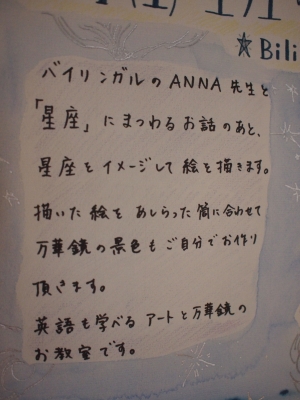 ★Bili
バイリンガルのANNA先生と
「星座」にまつわるお話のあと、
星座をイメージして絵を描きます。
描いた絵をあしらった筒に合わせて
万華鏡の景色もご自分でお作り
頂きます。
英語も学べるアートと万華鏡の
お教室です。